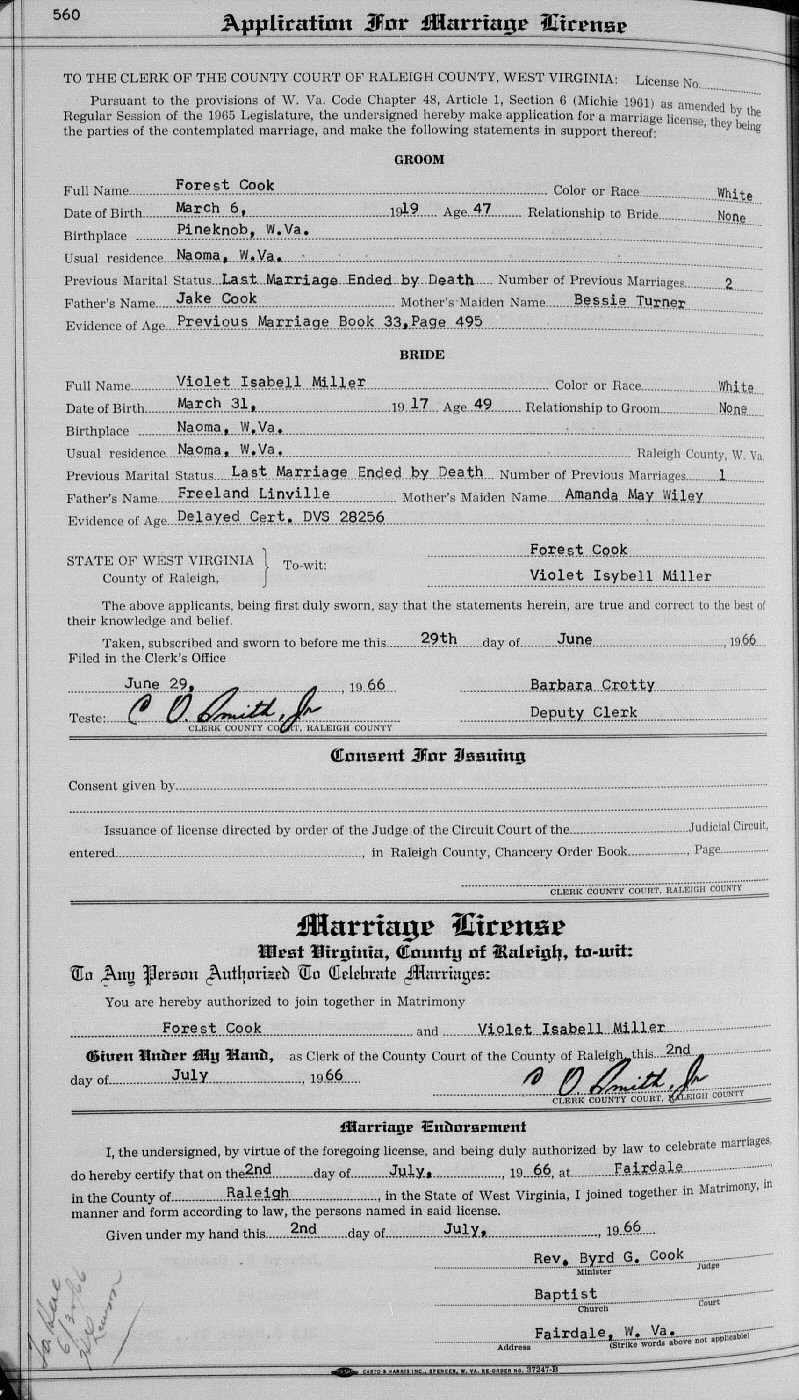 560
Application For Marriage License
TO THE CLERK OF THE COUNTY COURT OF RALEIGH COUNTY, WEST VIRGINIA: License No.
Pursuant to the provisions of W. Va. Code Chapter 48, Article 1, Section 6 (Michie 1961) as amended by the
Regular Session of the 1965 Legislature, the undersigned hereby make application for a marriage license, they being
the parties of the contemplated marriage, and make the following statements in support thereof:
GROOM
Full Name Forest Cook Color or Race White
Date of Birth March 6, 1919 Age 47 Relationship to Bride None
Birthplace Pineknob, W.Va.
Usual residence Naoma, W.Va.
Previous Marital Status Last Marriage Ended by Death Number of Previous Marriages 2
Father's Name Jake Cook Mother's Maiden Name Bessie Turner
Evidence of Age Previous Marriage Book 33, Page 495
BRIDE
Full Name Violet Isabell Miller Color or Race White
Date of Birth March 31, 19 17 Age 49 Relationship to Groom None
Birthplace Naoma, W.Va.
Usual residence Naoma, W.Va. Raleigh County, W. Va.
Previous Marital Status Last Marriage Ended by Death Number of Previous Marriages 1
Father's Name Freeland Linville Mother's Maiden Name Amanda May Wiley
Evidence of Age Delayed Cert. DVS 28256
Forest Cook
STATE OF WEST VIRGINIA } To-wit:
County of Raleigh, Violet Isybell Miller
The above applicants, being first duly sworn, say that the statements herein, are true and correct to the best of
their knowledge and belief.
Taken, subscribed and sworn to before me this 29th day of June, 1966
Filed in the Clerk's Office
June 29, 1966 Barbara Crotty
Teste: C O. Smith, Jr Deputy Clerk
CLERK COUNTY COURT, RALEIGH COUNTY
Consent For Issuing
Consent given by
Issuance of license directed by order of the Judge of the Circuit Court of the Judicial Circuit,
entered, in Raleigh County, Chancery Order Book, Page
CLERK COUNTY COURT, RALEIGH COUNTY
Marriage License
West Virginia, County of Raleigh, to-wit:
To Any Person Authorized To Celebrate Marriages:
You are hereby authorized to join together in Matrimony
Forest Cook and Violet Isabell Miller
Given Under My Hand, as Clerk of the County Court of the County of Raleigh, this 2nd
day of July, 1966 C O. Smith, Jr
CLERK COUNTY COURT, RALEIGH COUNTY
Marriage Endorsement
I, the undersigned, by virtue of the foregoing license, and being duly authorized by law to celebrate marriages,
do hereby certify that on the 2nd day of July, 19 66, at Fairdale
in the County of Raleigh, in the State of West Virginia, I joined together in Matrimony, in
manner and form according to law, the persons named in said license.
Given under my hand this 2nd day of July, 1966
Rev. Byrd G. Cook
Minister Judge
Baptist
Church Court
Fairdale, W. Va.
Address (Strike words above not applicable)
6/30/66
CASTO & HARRIS INC., SPENCER, W. VA. RE-ORDER NO. 37247-B